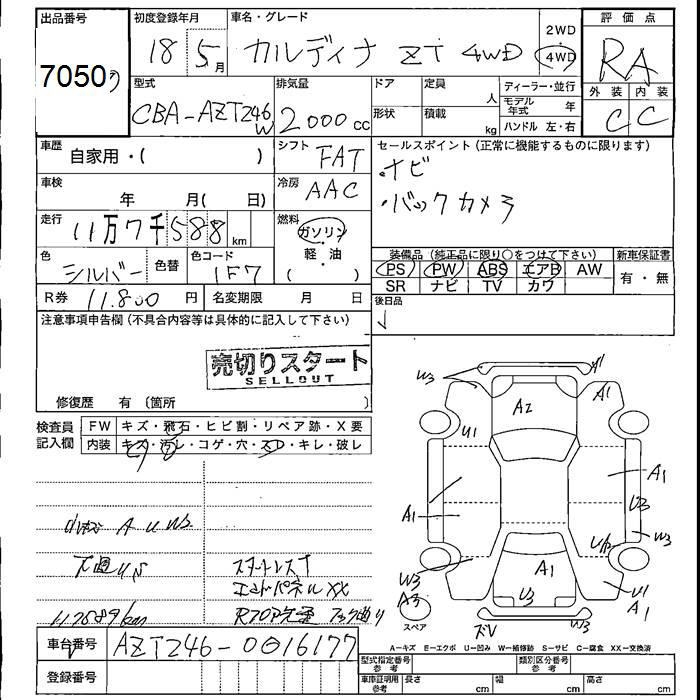 出品番号 初度登録年月 車名・グレード 評価点
7050 18年 5月 カルディナ ZT 4WD 2WD 4WD RA
型式 排気量 ドア 定員 人 ディーラー・並行 外装 内装
CBA-AZT246W 2000cc 形状 積載 kg モデル年式 年 C C
ハンドル 左・右
車歴 自家用・( ) シフト FAT セールスポイント(正常に機能するものに限ります)
車検 年 月( 日) 冷房 AAC ナビ
バックカメラ
走行 11万7千588km 燃料 ガソリン 軽・油 ( )
色 シルバー 色替 色コード 1F7
装備品(純正品に限り○をつけて下さい) 新車保証書
PS PW ABS エアB AW 有・無
SR ナビ TV カワ
R券 11.800円 名変期限 月 日 後日品
注意事項申告欄(不具合内容等は具体的に記入して下さい)
売切りスタート
SELLOUT
修復歴 有(箇所 )
検査員記入欄 FW キズ・飛石・ヒビ割・リペア跡・X要
内装 キズ・汚レ・コゲ・穴・スレ・キレ・破レ
A U W2
下廻りS
エンドパネルXX
W3 A1 A2 U1 A1 A1 A1 U3 W3 W3 A3 A1 U3 U1 A1 W3
スペア
A-キズ E-エクボ U-凹み W-補修跡 S-サビ C-腐食 XX-交換済
車台番号 AZT246-0016177
登録番号
型式指定番号 参考 類別区分番号 参考
車庫証明用 参考 長さ cm 幅 cm 高さ cm